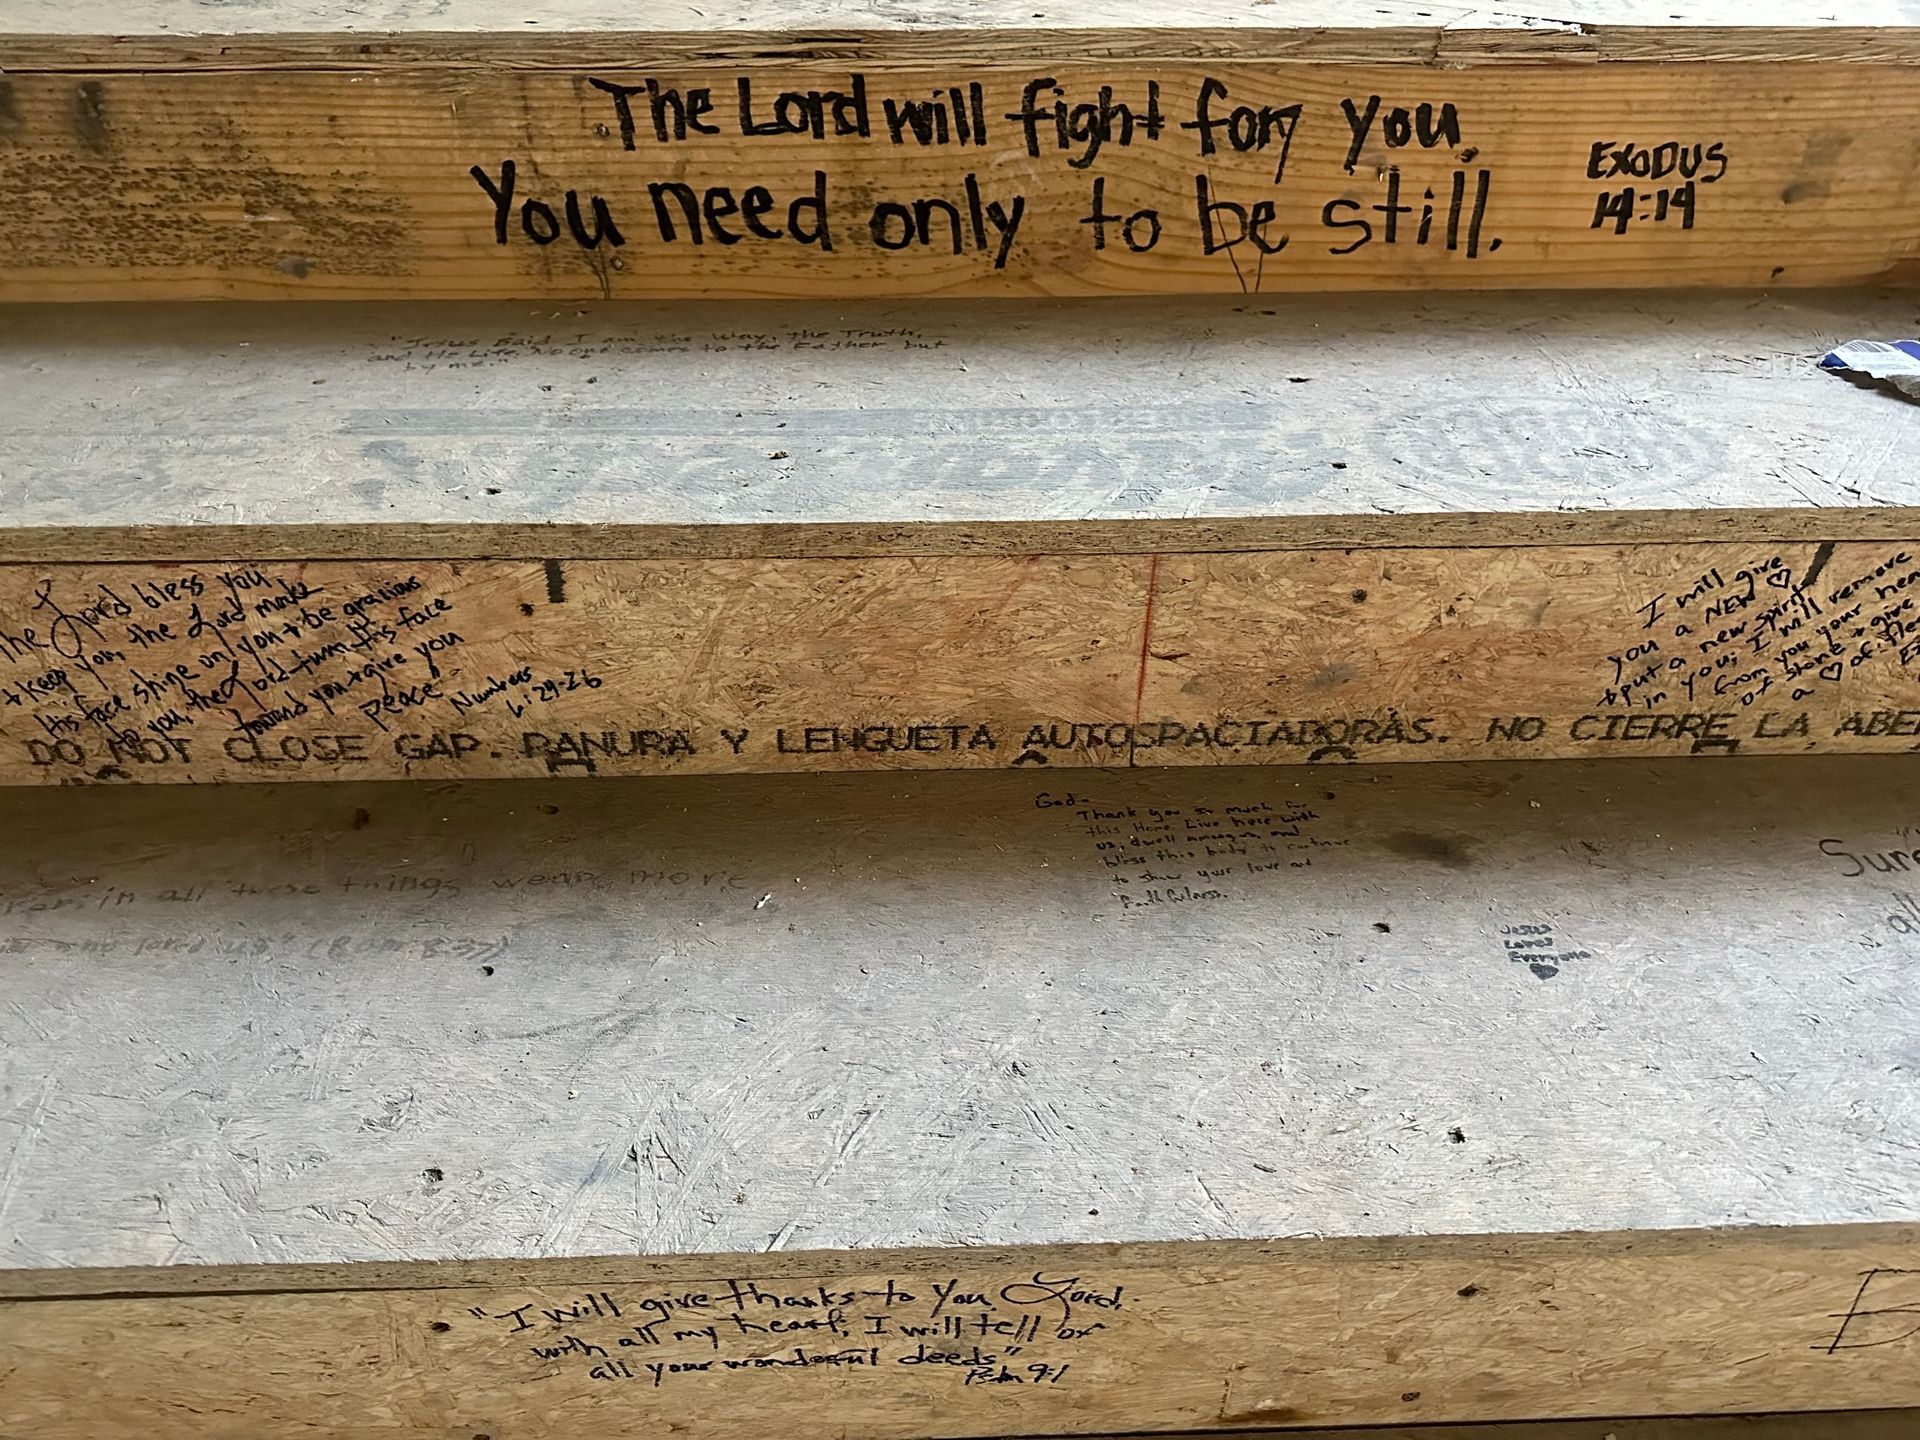 The Lord will fight for you.
You need only to be still.
EXODUS
14:14
"Jesus said I am the Way, the Truth,
and the Life. No one comes to the Father but
by me."
The Lord bless you
+ keep you, the Lord make
His face shine on you + be gracious
to you, the Lord turn His face
toward you + give you
peace"
Numbers
6:24-26
I will give
you a NEW ♡
+ put a new spirit
in you; I will remove
from you your hea
of stone + give
a ♡ of fles
DO NOT CLOSE GAP. RANURA Y LENGUETA AUTOSPACIADORAS. NO CIERRE LA ABE
God-
Thank you so much for
this Home. Live here with
us, dwell among us, and
bless this body to continue
to show your love and
Faithfulness.
For in all these things we are more
loved us" (Rom 8:37)
Jesus
Loves
Everyone
Sure
all
"I will give thanks to You Lord,
with all my heart; I will tell of
all your wonderful deeds"
Psalm 9:1
B